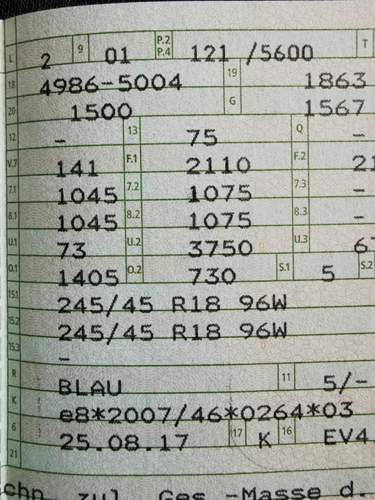 L 2 9 01 P.2 P.4 121 /5600 T
18 4986-5004 19 1863
20 1500 G 1567
12 - 13 75 Q -
V.7 141 F.1 2110 F.2 21
7.1 1045 7.2 1075 7.3 -
8.1 1045 8.2 1075 8.3 -
U.1 73 U.2 3750 U.3 67
O.1 1405 O.2 730 S.1 5 S.2
15.1 245/45 R18 96W
15.2 245/45 R18 96W
15.3 -
R BLAU 11 5/-
K e8*2007/46*0264*03
6 25.08.17 17 K 16 EV4
21
zul. Ges.-Masse d.